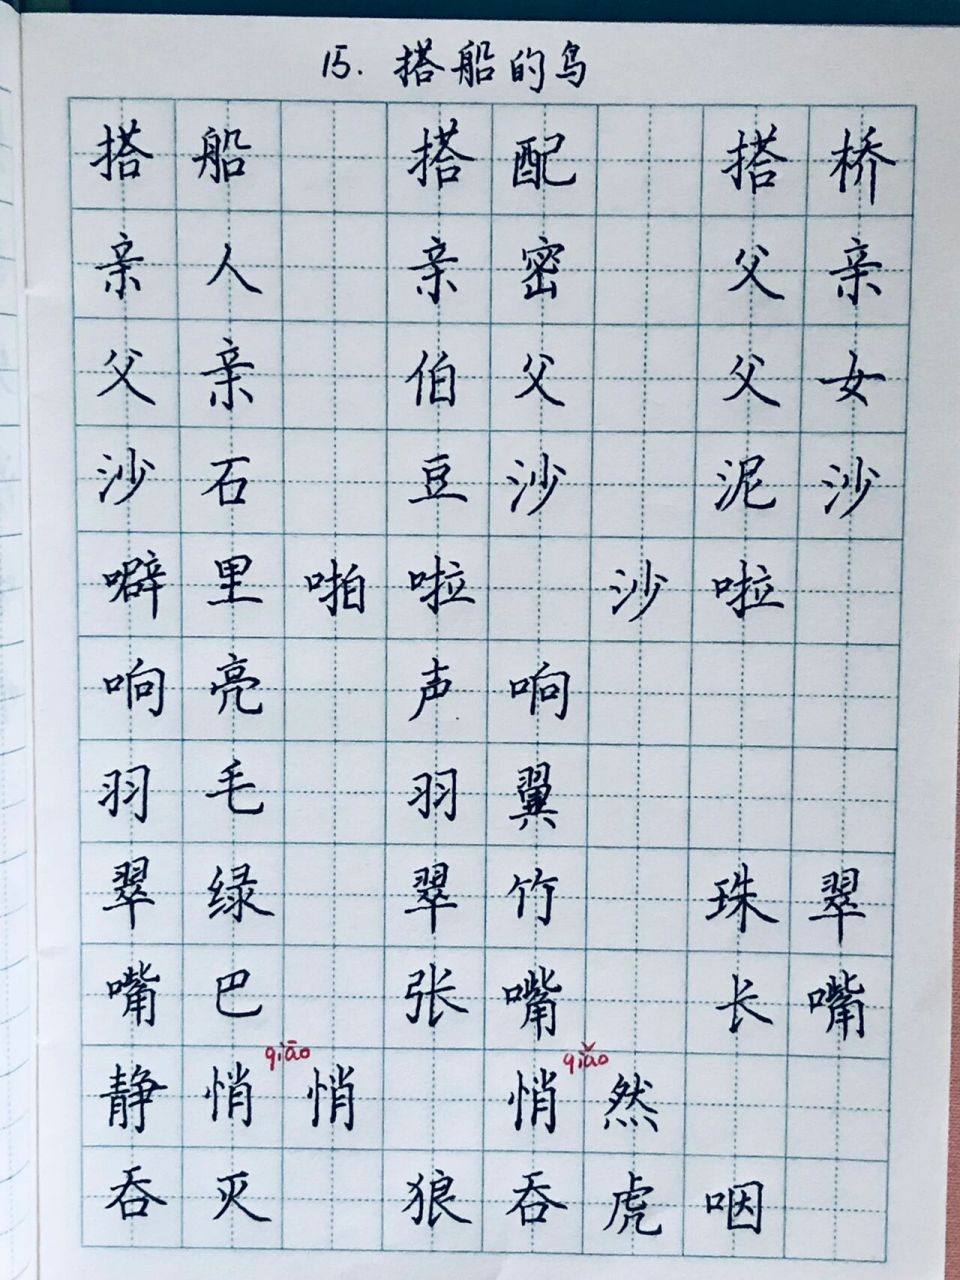 15. 搭船的鸟
搭船 搭配 搭桥
亲人 亲密 父亲
父亲 伯父 父女
沙石 豆沙 泥沙
噼里啪啦 沙啦
响亮 声响
羽毛 羽翼
翠绿 翠竹 珠翠
嘴巴 张嘴 长嘴
qiāo qiǎo
静悄悄 悄然
吞灭 狼吞虎咽